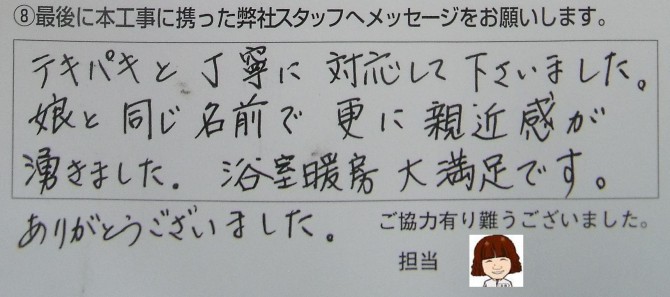 ⑧最後に本工事に携った弊社スタッフへメッセージをお願いします。
テキパキと丁寧に対応して下さいました。
娘と同じ名前で更に親近感が
湧きました。浴室暖房大満足です。
ありがとうございました。
ご協力有り難うございました。
担当